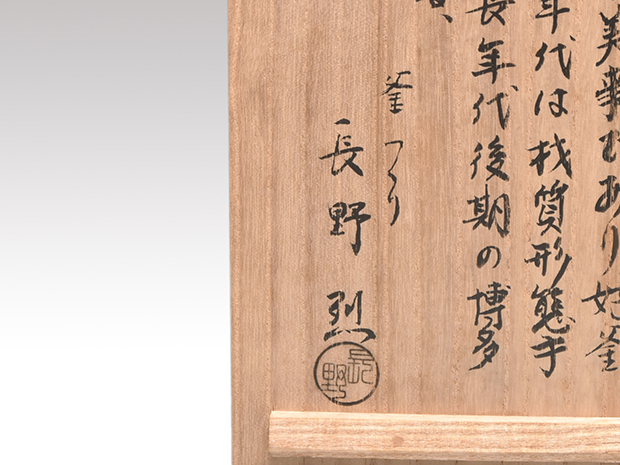 美事であり釜
年代は材質形態手
長年代後期の博多
釜つくり
長野烈
長野